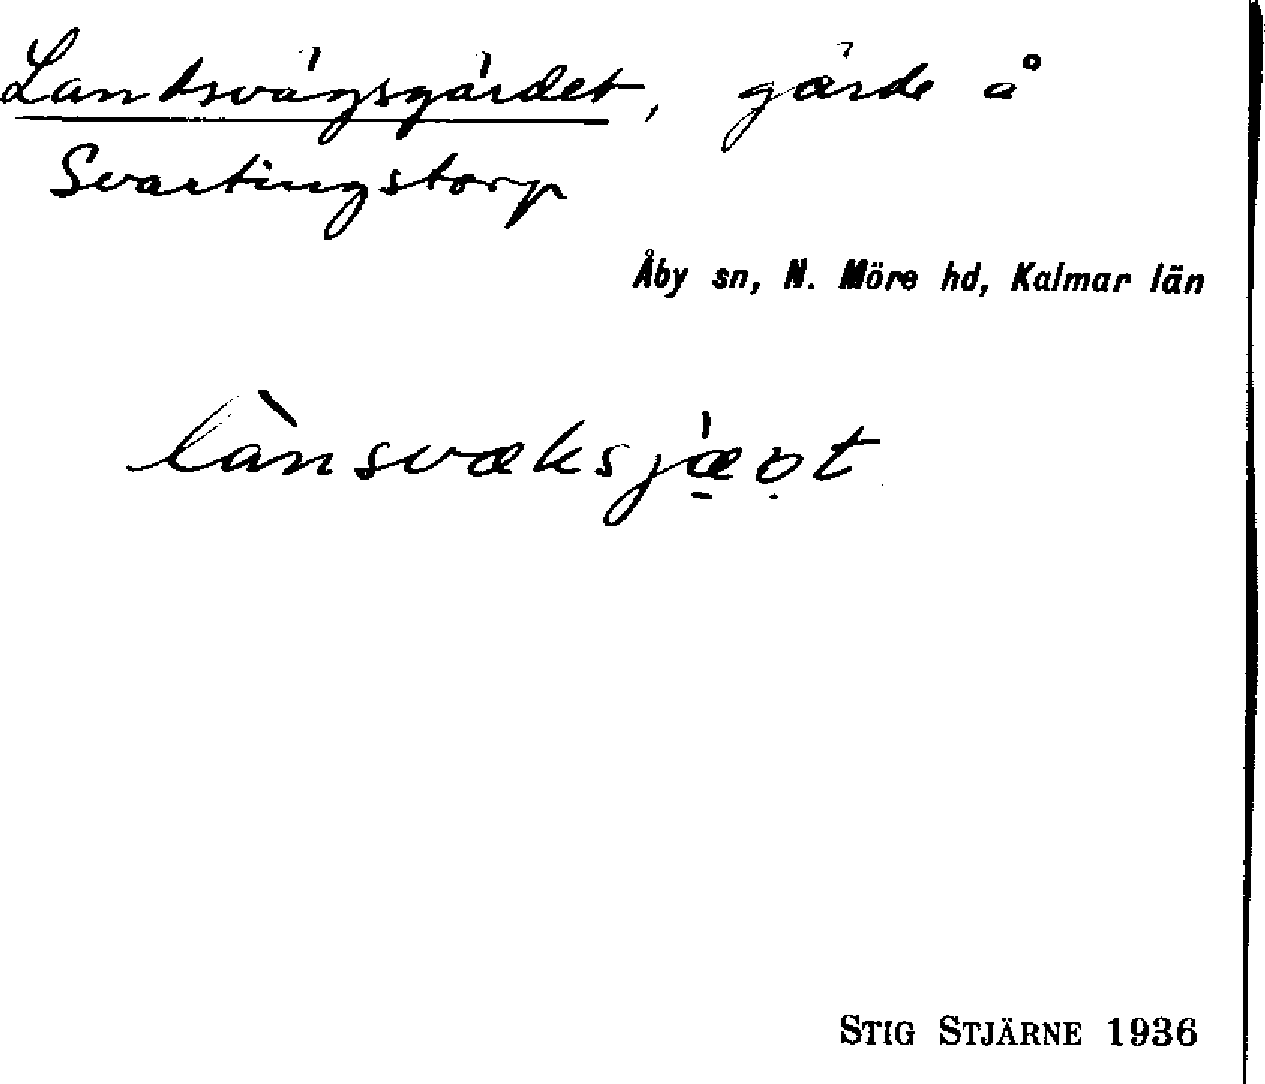 Landsvägsgärdet, gärde å
Svartingstorp
Åby sn, N. Möre hd, Kalmar län
STIG STJÄRNE 1936